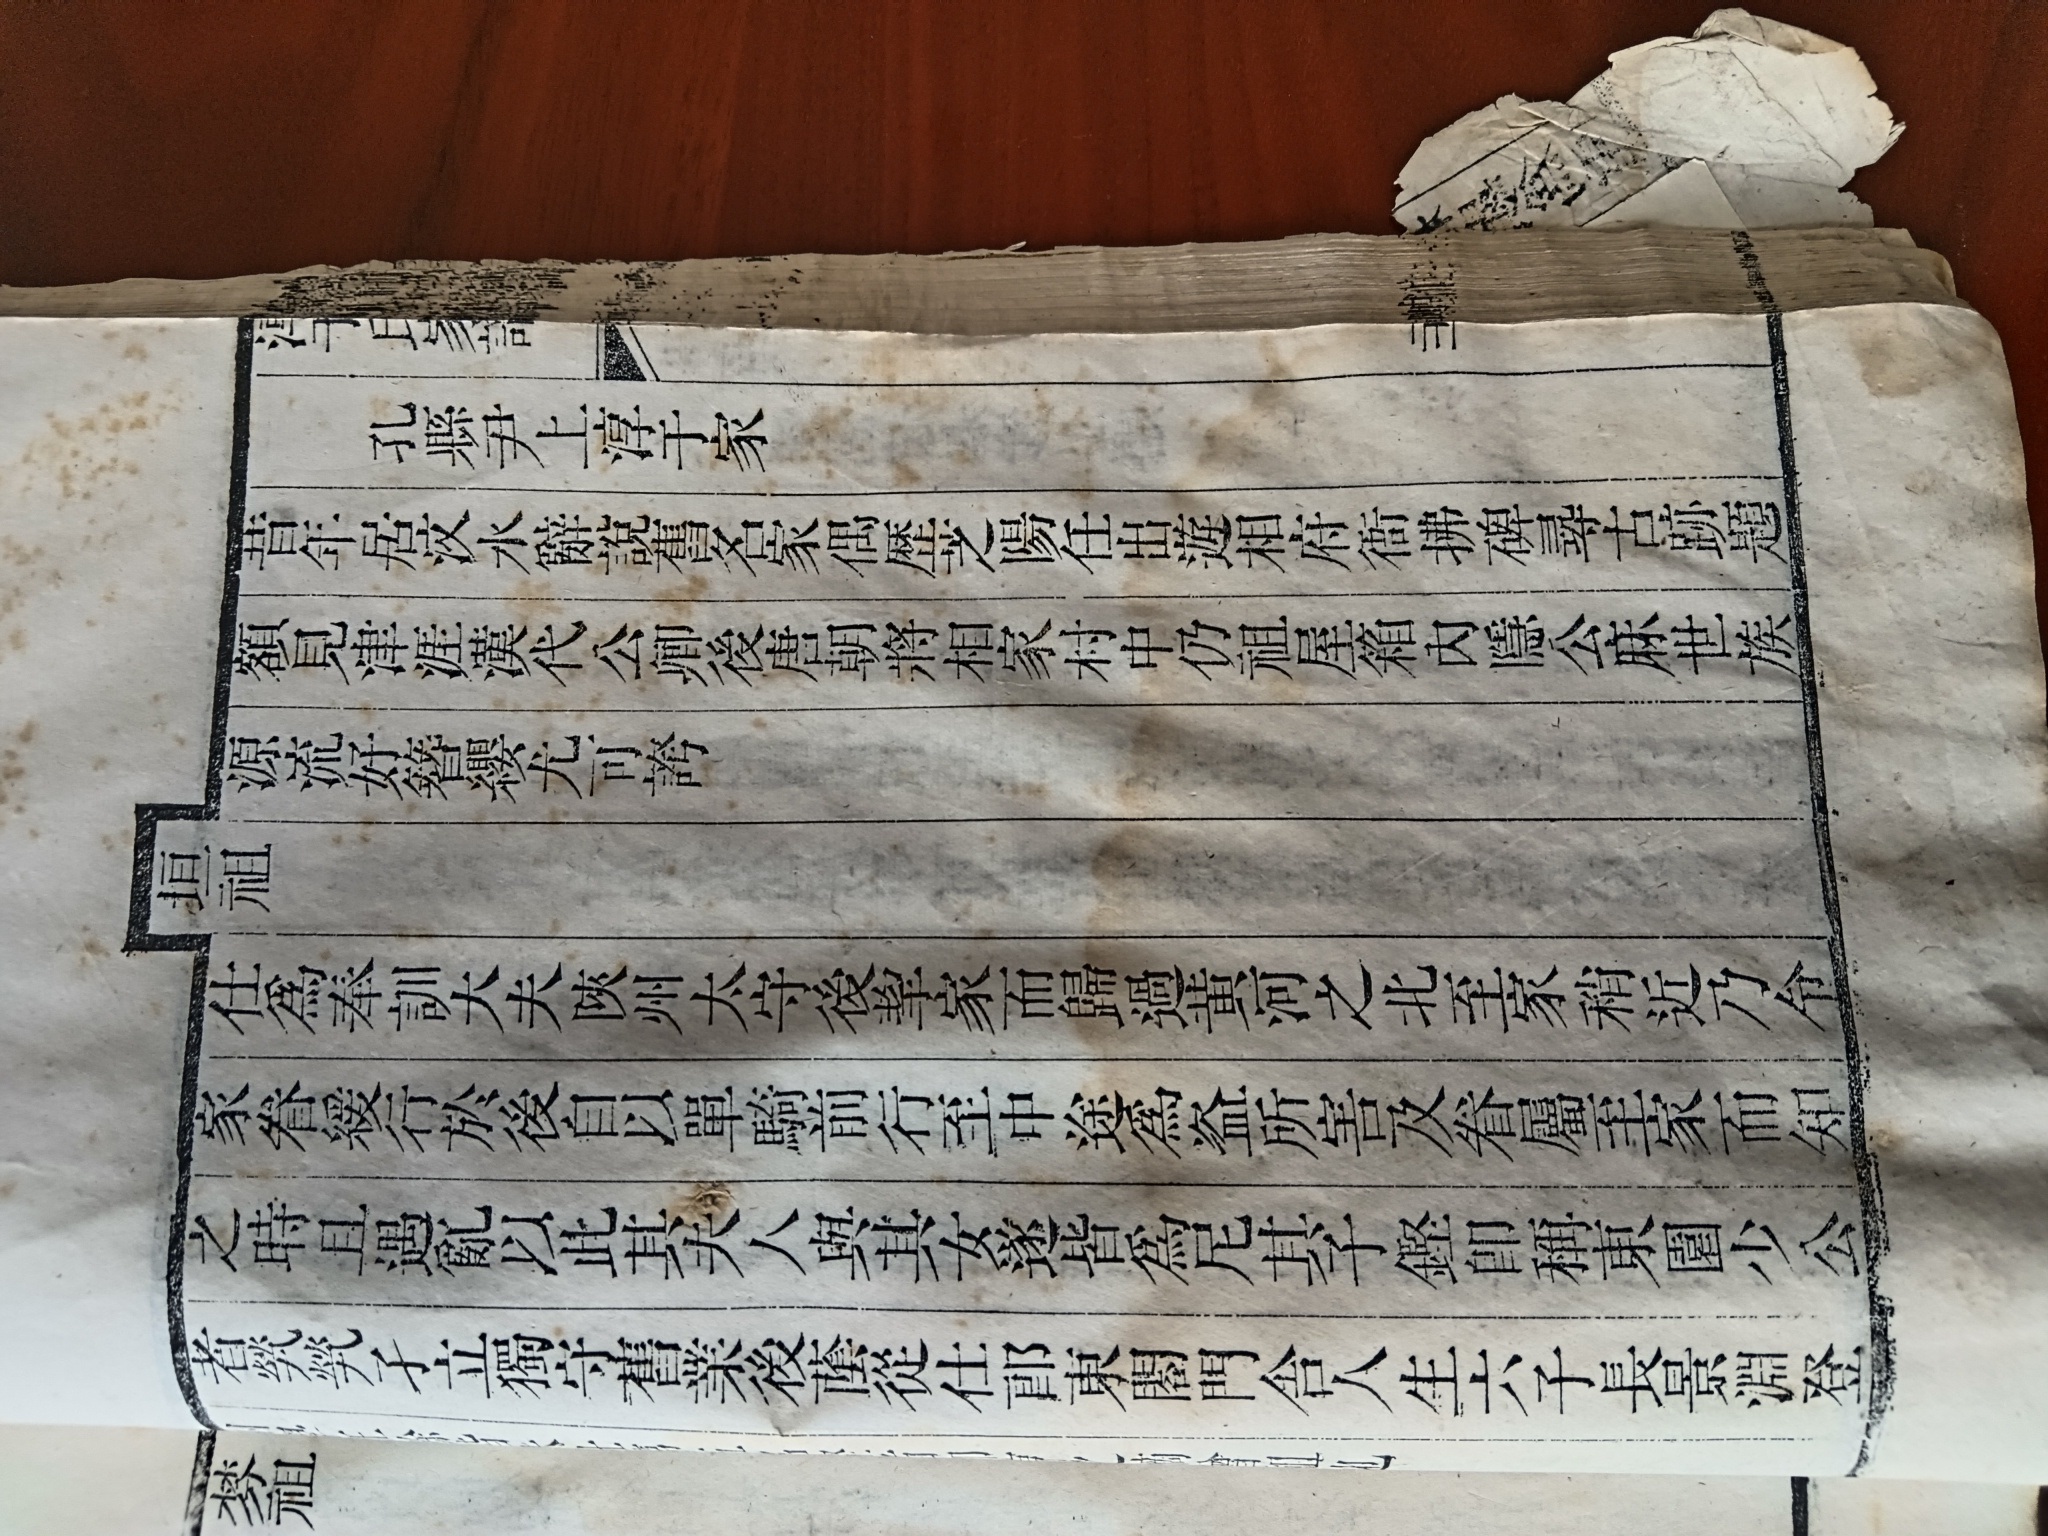 淳于氏家譜 三
孔縣尹上淳于家
昔年居汶水辭說舊名家偶歷之陽任出遊相府衙拂碑尋古跡題
額見津涯漢代公卿後唐朝將相家村中仍祖屋箱內隱公麻世族
源流好簪纓尤可誇
垣祖
仕爲奉訓大夫陝州太守後挈家而歸過黃河之北至家稍近乃令
家眷緩行於後自以單騎前行至中途爲盜所害及眷屬至家而知
之時且遇亂以此其夫人與其女遂皆爲尼其子鏗卽稱東園少公
者煢煢孑立獨守舊業後蔭從仕郎東閣門舍人生六子長景淵登
祖